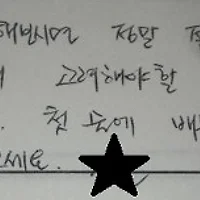 해보시면 정말
고려해야할
첫 눈에
세요.